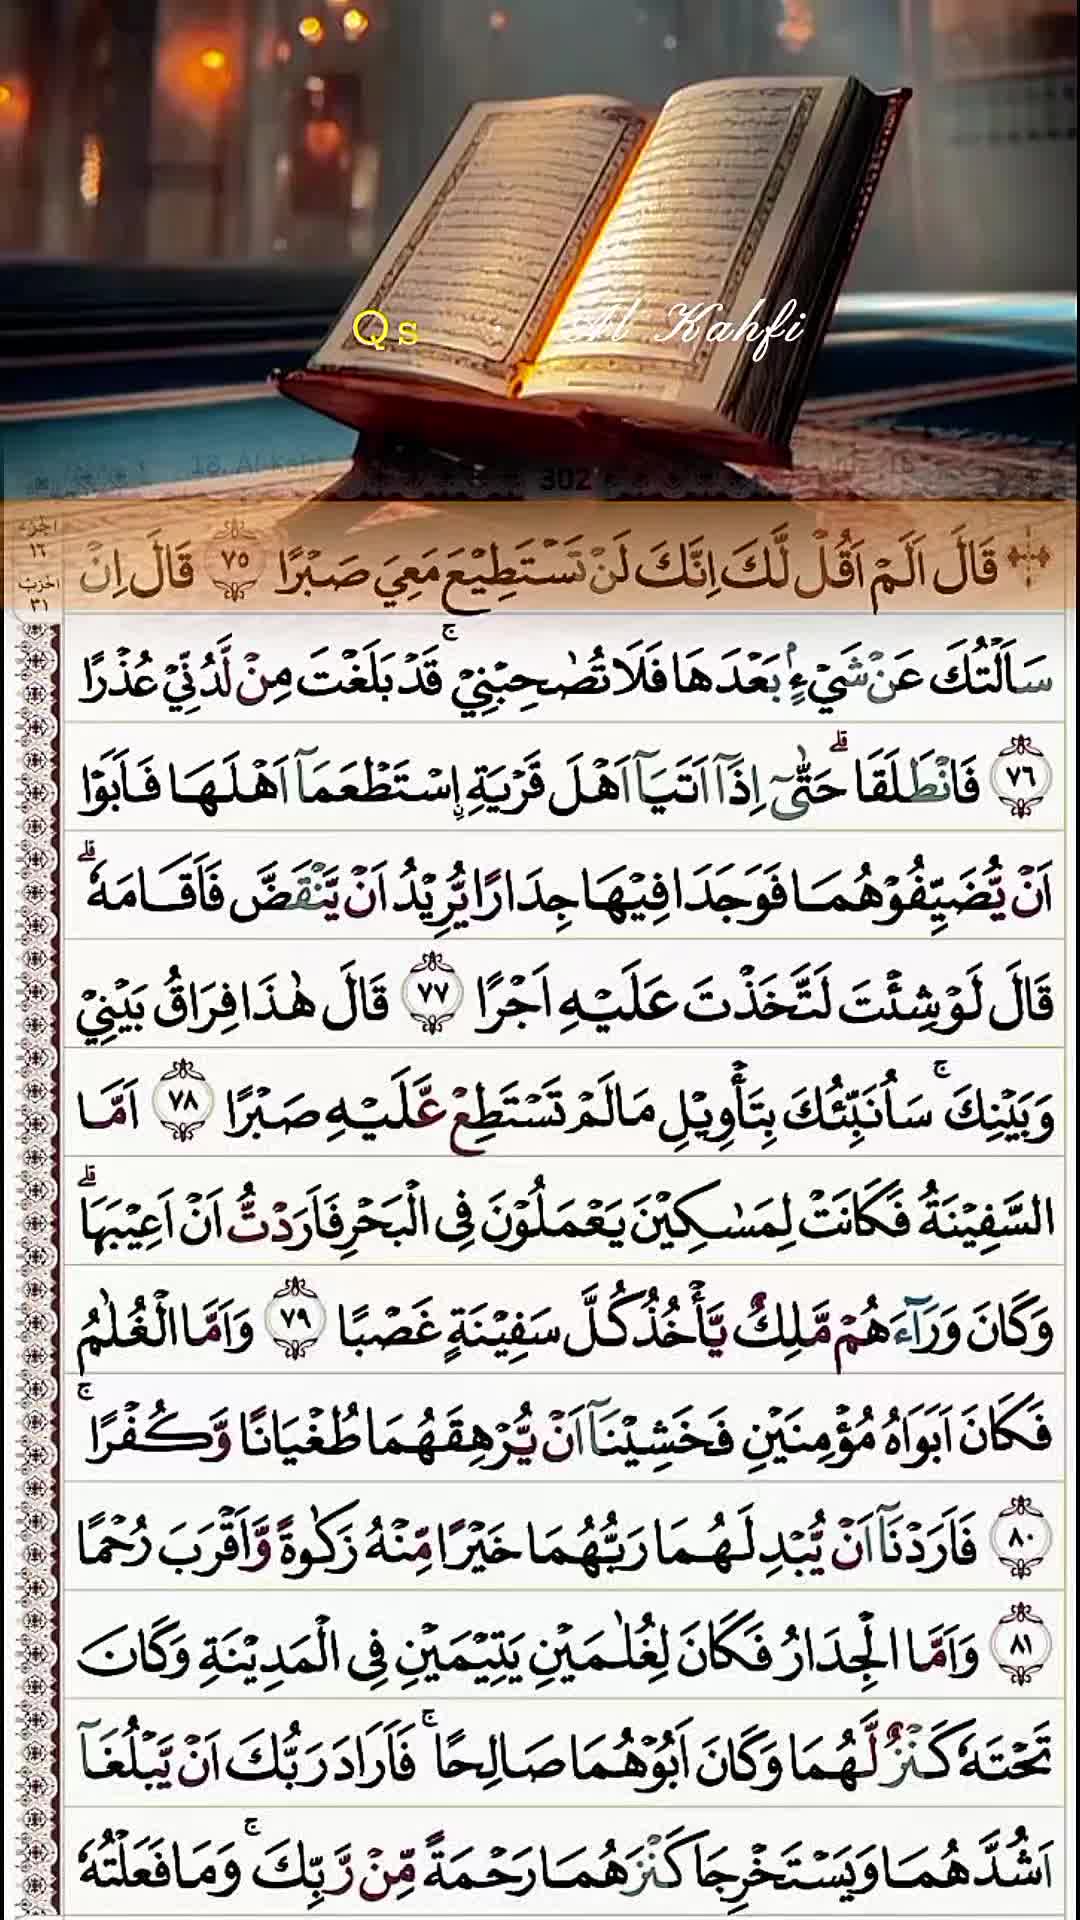 Qs . Al Kahfi
18. Al-Kahf
302
الجزء
١٦
الحزب
٣١
قَالَ اَلَمْ اَقُلْ لَّكَ اِنَّكَ لَنْ تَسْتَطِيْعَ مَعِيَ صَبْرًا ٧٥ قَالَ اِنْ
سَاَلْتُكَ عَنْ شَيْءٍۢ بَعْدَهَا فَلَا تُصٰحِبْنِيْۚ قَدْ بَلَغْتَ مِنْ لَّدُنِّيْ عُذْرًا
٧٦ فَانْطَلَقَاۗ حَتّٰىٓ اِذَآ اَتَيَآ اَهْلَ قَرْيَةِ ِۨاسْتَطْعَمَآ اَهْلَهَا فَاَبَوْا
اَنْ يُّضَيِّفُوْهُمَا فَوَجَدَا فِيْهَا جِدَارًا يُّرِيْدُ اَنْ يَّنْقَضَّ فَاَقَامَهٗۗ
قَالَ لَوْ شِئْتَ لَتَّخَذْتَ عَلَيْهِ اَجْرًا ٧٧ قَالَ هٰذَا فِرَاقُ بَيْنِيْ
وَبَيْنِكَۚ سَاُنَبِّئُكَ بِتَأْوِيْلِ مَا لَمْ تَسْتَطِعْ عَّلَيْهِ صَبْرًا ٧٨ اَمَّا
السَّفِيْنَةُ فَكَانَتْ لِمَسٰكِيْنَ يَعْمَلُوْنَ فِى الْبَحْرِ فَاَرَدْتُّ اَنْ اَعِيْبَهَاۗ
وَكَانَ وَرَاۤءَهُمْ مَّلِكٌ يَّأْخُذُ كُلَّ سَفِيْنَةٍ غَصْبًا ٧٩ وَاَمَّا الْغُلٰمُ
فَكَانَ اَبَوَاهُ مُؤْمِنَيْنِ فَخَشِيْنَآ اَنْ يُّرْهِقَهُمَا طُغْيَانًا وَّكُفْرًاۚ
٨٠ فَاَرَدْنَآ اَنْ يُّبْدِلَهُمَا رَبُّهُمَا خَيْرًا مِّنْهُ زَكٰوةً وَّاَقْرَبَ رُحْمًا
٨١ وَاَمَّا الْجِدَارُ فَكَانَ لِغُلٰمَيْنِ يَتِيْمَيْنِ فِى الْمَدِيْنَةِ وَكَانَ
تَحْتَهٗ كَنْزٌ لَّهُمَا وَكَانَ اَبُوْهُمَا صَالِحًاۚ فَاَرَادَ رَبُّكَ اَنْ يَّبْلُغَآ
اَشُدَّهُمَا وَيَسْتَخْرِجَا كَنْزَهُمَا رَحْمَةً مِّنْ رَّبِّكَۚ وَمَا فَعَلْتُهٗ